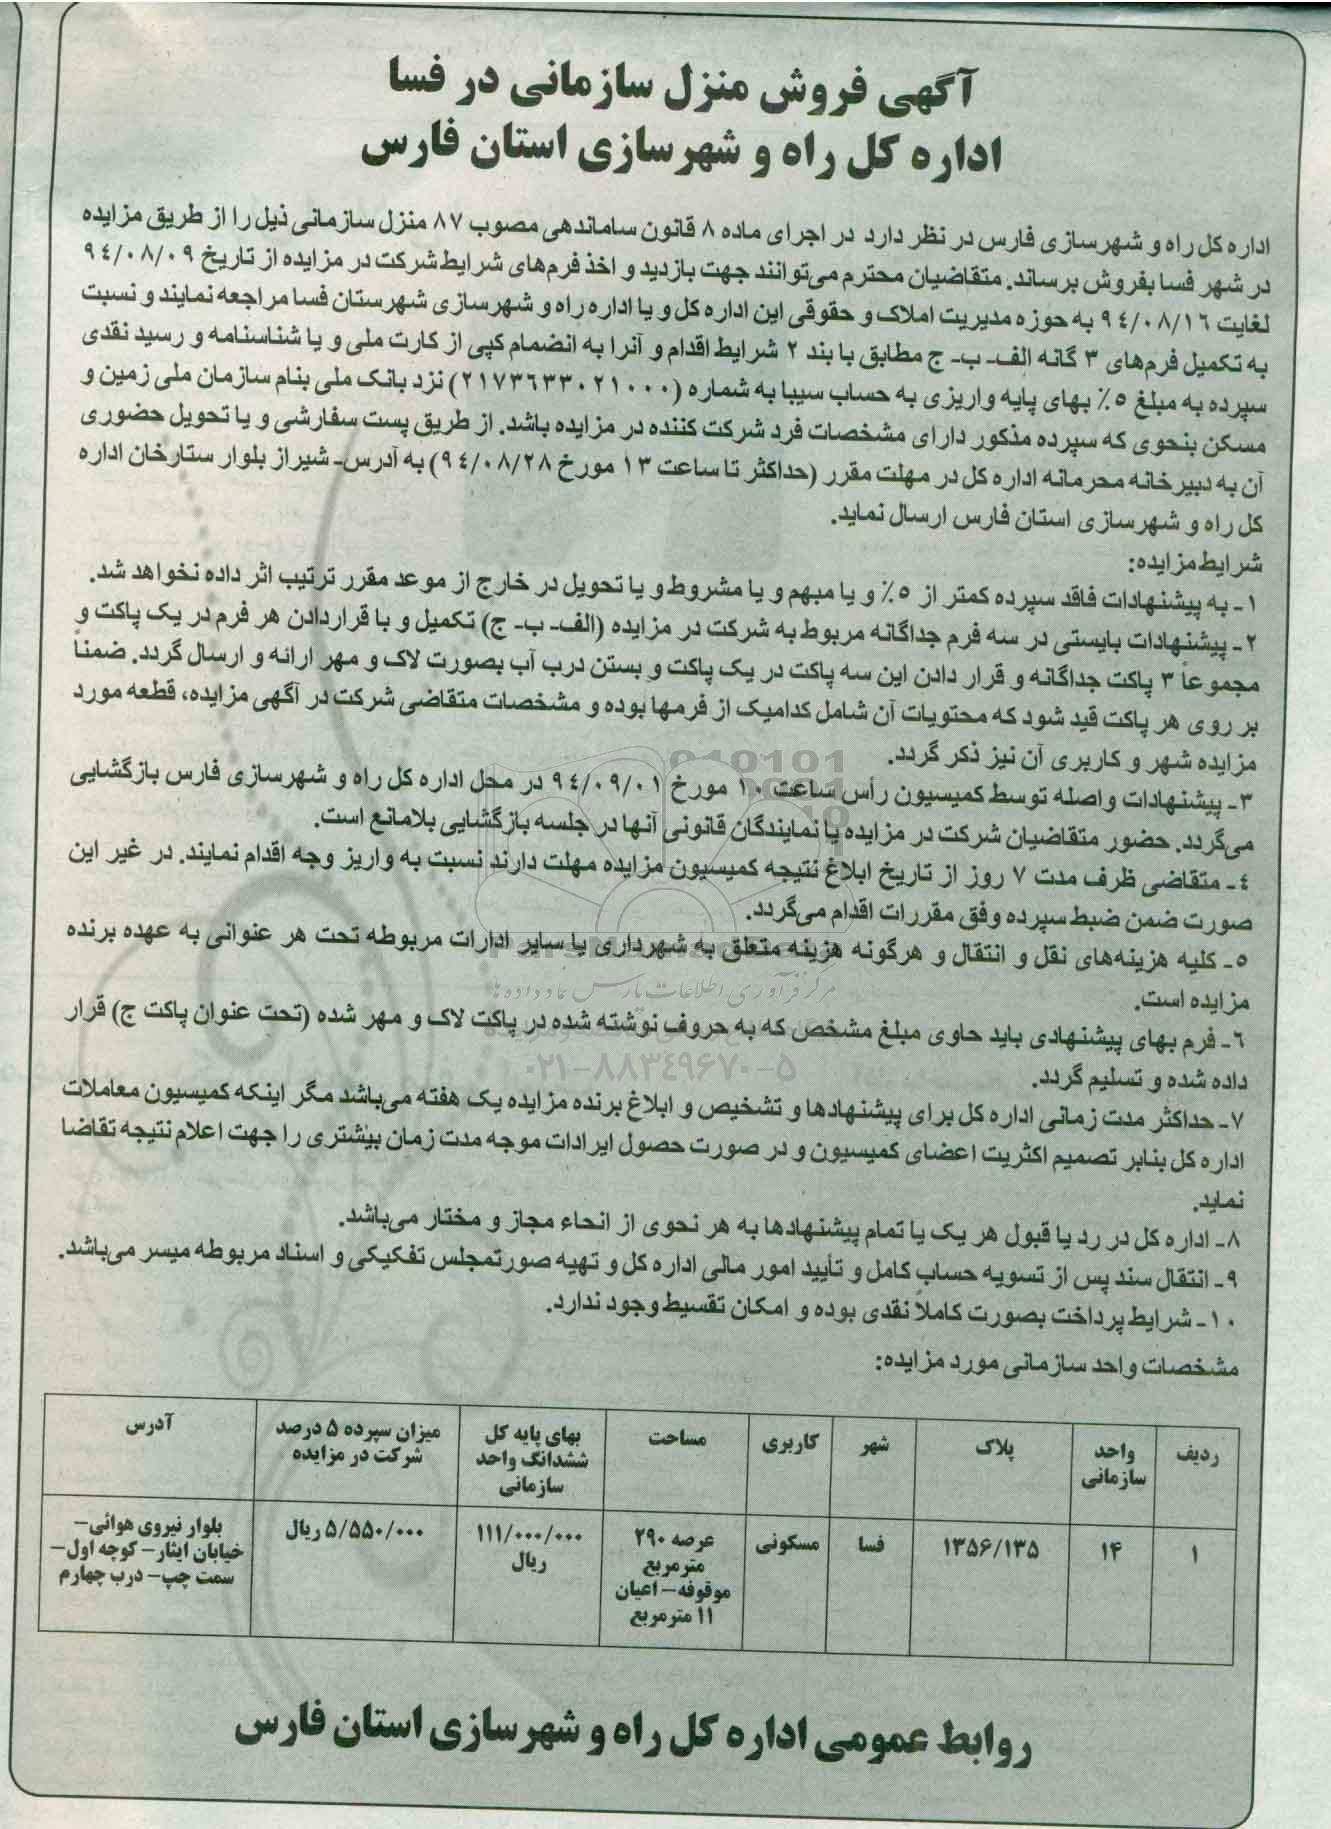 آگهی فروش منزل سازمانی در فسا
اداره کل راه و شهرسازی استان فارس
اداره کل راه و شهرسازی فارس در نظر دارد در اجرای ماده ۸ قانون ساماندهی مصوب ۸۷ منزل سازمانی ذیل را از طریق مزایده
در شهر فسا بفروش برساند. متقاضیان محترم می‌توانند جهت بازدید و اخذ فرم‌های شرایط شرکت در مزایده از تاریخ ۹٤/۰۸/۰۹
لغایت ۹٤/۰۸/۱٦ به حوزه مدیریت املاک و حقوقی این اداره کل و یا اداره راه و شهرسازی شهرستان فسا مراجعه نمایند و نسبت
به تکمیل فرم‌های ۳ گانه الف- ب- ج مطابق با بند ۲ شرایط اقدام و آنرا به انضمام کپی از کارت ملی و یا شناسنامه و رسید نقدی
سپرده به مبلغ ۵٪ بهای پایه واریزی به حساب سیبا به شماره (۲۱۷۳٦۳۳۰۲۱۰۰۰) نزد بانک ملی بنام سازمان ملی زمین و
مسکن بنحوی که سپرده مذکور دارای مشخصات فرد شرکت کننده در مزایده باشد. از طریق پست سفارشی و یا تحویل حضوری
آن به دبیرخانه محرمانه اداره کل در مهلت مقرر (حداکثر تا ساعت ۱۳ مورخ ۹٤/۰۸/۲۸) به آدرس- شیراز بلوار ستارخان اداره
کل راه و شهرسازی استان فارس ارسال نماید.
شرایط مزایده:
۱- به پیشنهادات فاقد سپرده کمتر از ۵٪ و یا مبهم و یا مشروط و یا تحویل در خارج از موعد مقرر ترتیب اثر داده نخواهد شد.
۲- پیشنهادات بایستی در سه فرم جداگانه مربوط به شرکت در مزایده (الف- ب- ج) تکمیل و با قراردادن هر فرم در یک پاکت و
مجموعاً ۳ پاکت جداگانه و قرار دادن این سه پاکت در یک پاکت و بستن درب آب بصورت لاک و مهر ارائه و ارسال گردد. ضمناً
بر روی هر پاکت قید شود که محتویات آن شامل کدامیک از فرمها بوده و مشخصات متقاضی شرکت در آگهی مزایده، قطعه مورد
مزایده شهر و کاربری آن نیز ذکر گردد.
۳- پیشنهادات واصله توسط کمیسیون رأس ساعت ۱۰ مورخ ۹٤/۰۹/۰۱ در محل اداره کل راه و شهرسازی فارس بازگشایی
می‌گردد. حضور متقاضیان شرکت در مزایده یا نمایندگان قانونی آنها در جلسه بازگشایی بلامانع است.
٤- متقاضی ظرف مدت ۷ روز از تاریخ ابلاغ نتیجه کمیسیون مزایده مهلت دارند نسبت به واریز وجه اقدام نمایند. در غیر این
صورت ضمن ضبط سپرده وفق مقررات اقدام می‌گردد.
۵- کلیه هزینه‌های نقل و انتقال و هرگونه هزینه متعلق به شهرداری یا سایر ادارات مربوطه تحت هر عنوانی به عهده برنده
مزایده است.
مرکز فرآوری اطلاعات پارس نماد داده‌ها
٦- فرم بهای پیشنهادی باید حاوی مبلغ مشخص که به حروف نوشته شده در پاکت لاک و مهر شده (تحت عنوان پاکت ج) قرار
داده شده و تسلیم گردد.
۰۲۱-۸۸۳۴۹۶۷۰-۵
۷- حداکثر مدت زمانی اداره کل برای پیشنهادها و تشخیص و ابلاغ برنده مزایده یک هفته می‌باشد مگر اینکه کمیسیون معاملات
اداره کل بنابر تصمیم اکثریت اعضای کمیسیون و در صورت حصول ایرادات موجه مدت زمان بیشتری را جهت اعلام نتیجه تقاضا
نماید.
۸- اداره کل در رد یا قبول هر یک یا تمام پیشنهادها به هر نحوی از انحاء مجاز و مختار می‌باشد.
۹- انتقال سند پس از تسویه حساب کامل و تأیید امور مالی اداره کل و تهیه صورتمجلس تفکیکی و اسناد مربوطه میسر می‌باشد.
۱۰- شرایط پرداخت بصورت کاملاً نقدی بوده و امکان تقسیط وجود ندارد.
مشخصات واحد سازمانی مورد مزایده:
ردیف | واحد سازمانی | پلاک | شهر | کاربری | مساحت | بهای پایه کل ششدانگ واحد سازمانی | میزان سپرده ۵ درصد شرکت در مزایده | آدرس
۱ | ۱۴ | ۱۳۵۶/۱۳۵ | فسا | مسکونی | عرصه ۲۹۰ مترمربع موقوفه- اعیان ۱۱ مترمربع | ۱۱۱/۰۰۰/۰۰۰ ریال | ۵/۵۵۰/۰۰۰ ریال | بلوار نیروی هوائی- خیابان ایثار- کوچه اول- سمت چپ- درب چهارم
روابط عمومی اداره کل راه و شهرسازی استان فارس